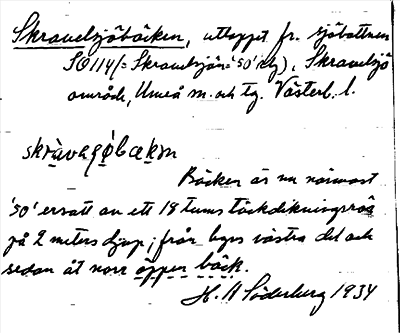 Skravelsjöbäcken, utloppet fr. sjöbottnen
SO 114 (= Skravelsjön '50' ), Skravelsjö
område, Umeå sn. och tg. Västerb. l.
skràvaʂø̀bækən
Bäcken är nu närmast
'50' ersatt av ett 18 tums täckdikningsrör
på 2 meters djup; från byns västra del och
sedan åt norr öppen bäck.
H. A. Söderberg 1934